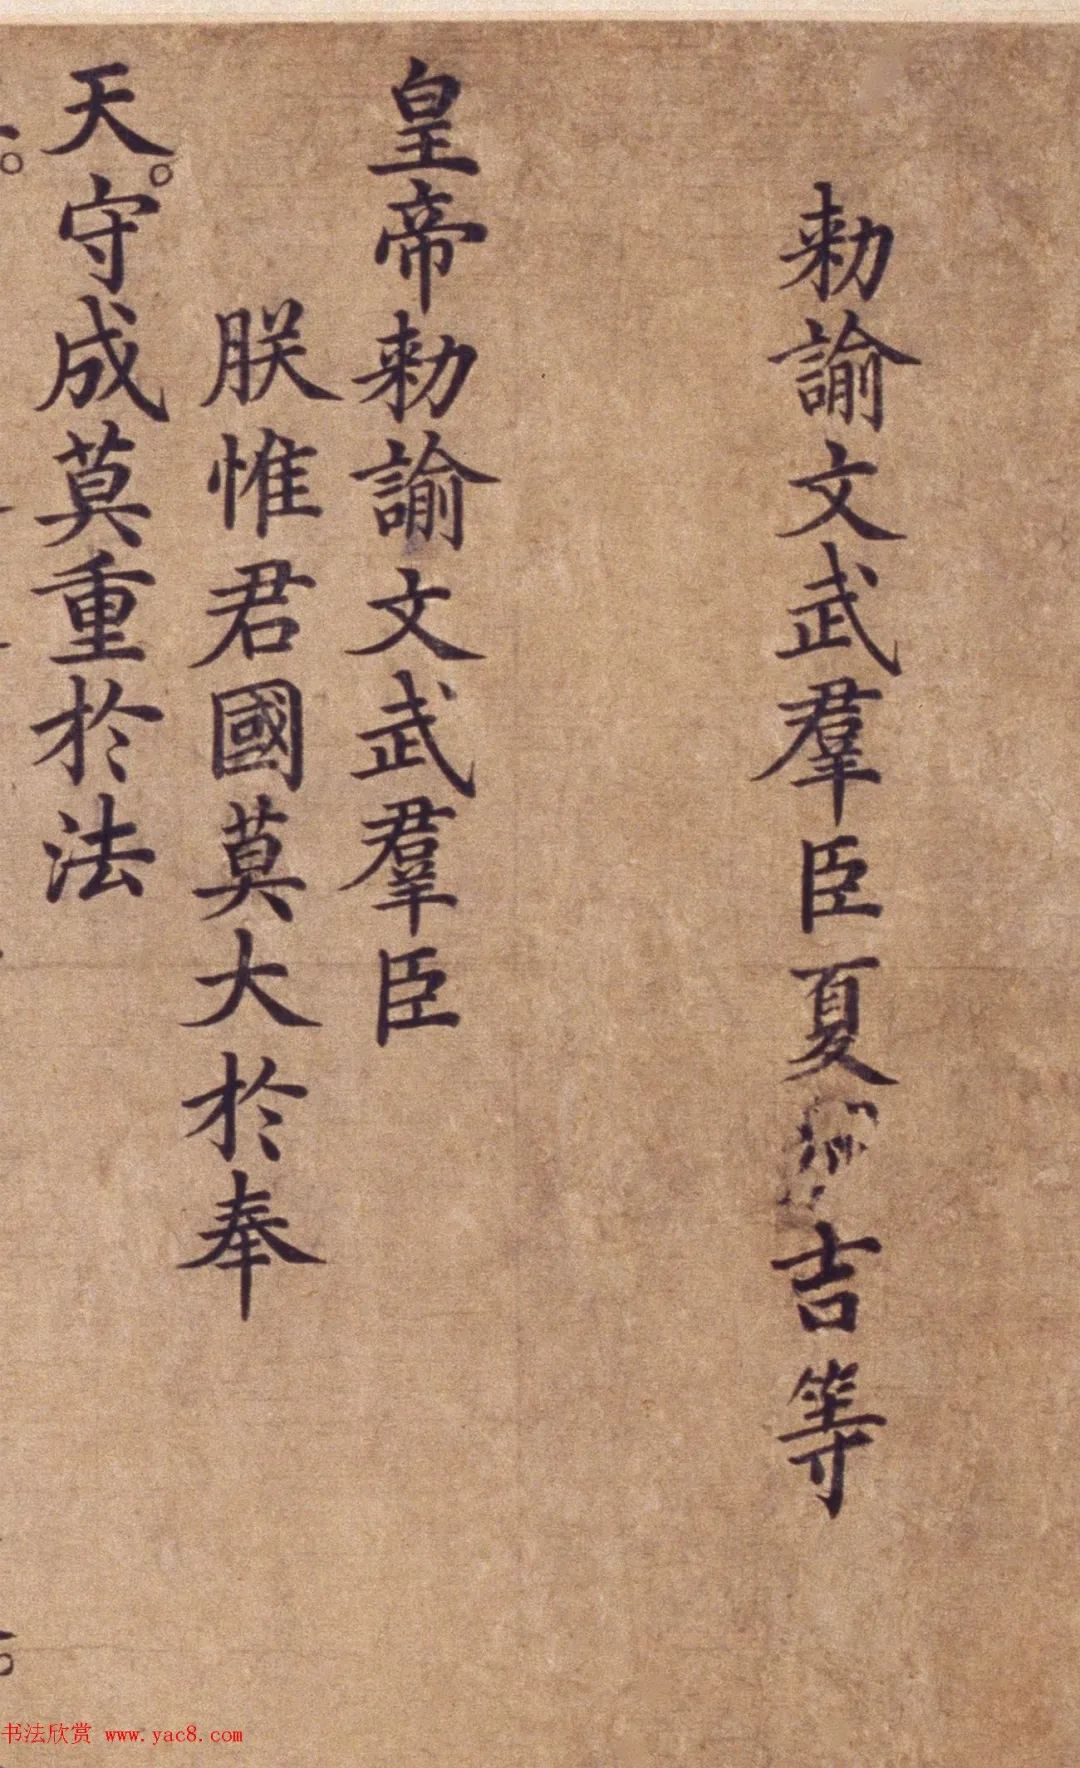 勑諭文武羣臣夏吉等
皇帝勑諭文武羣臣
朕惟君國莫大於奉
天。守成莫重於法
书法欣赏 www.yac8.com